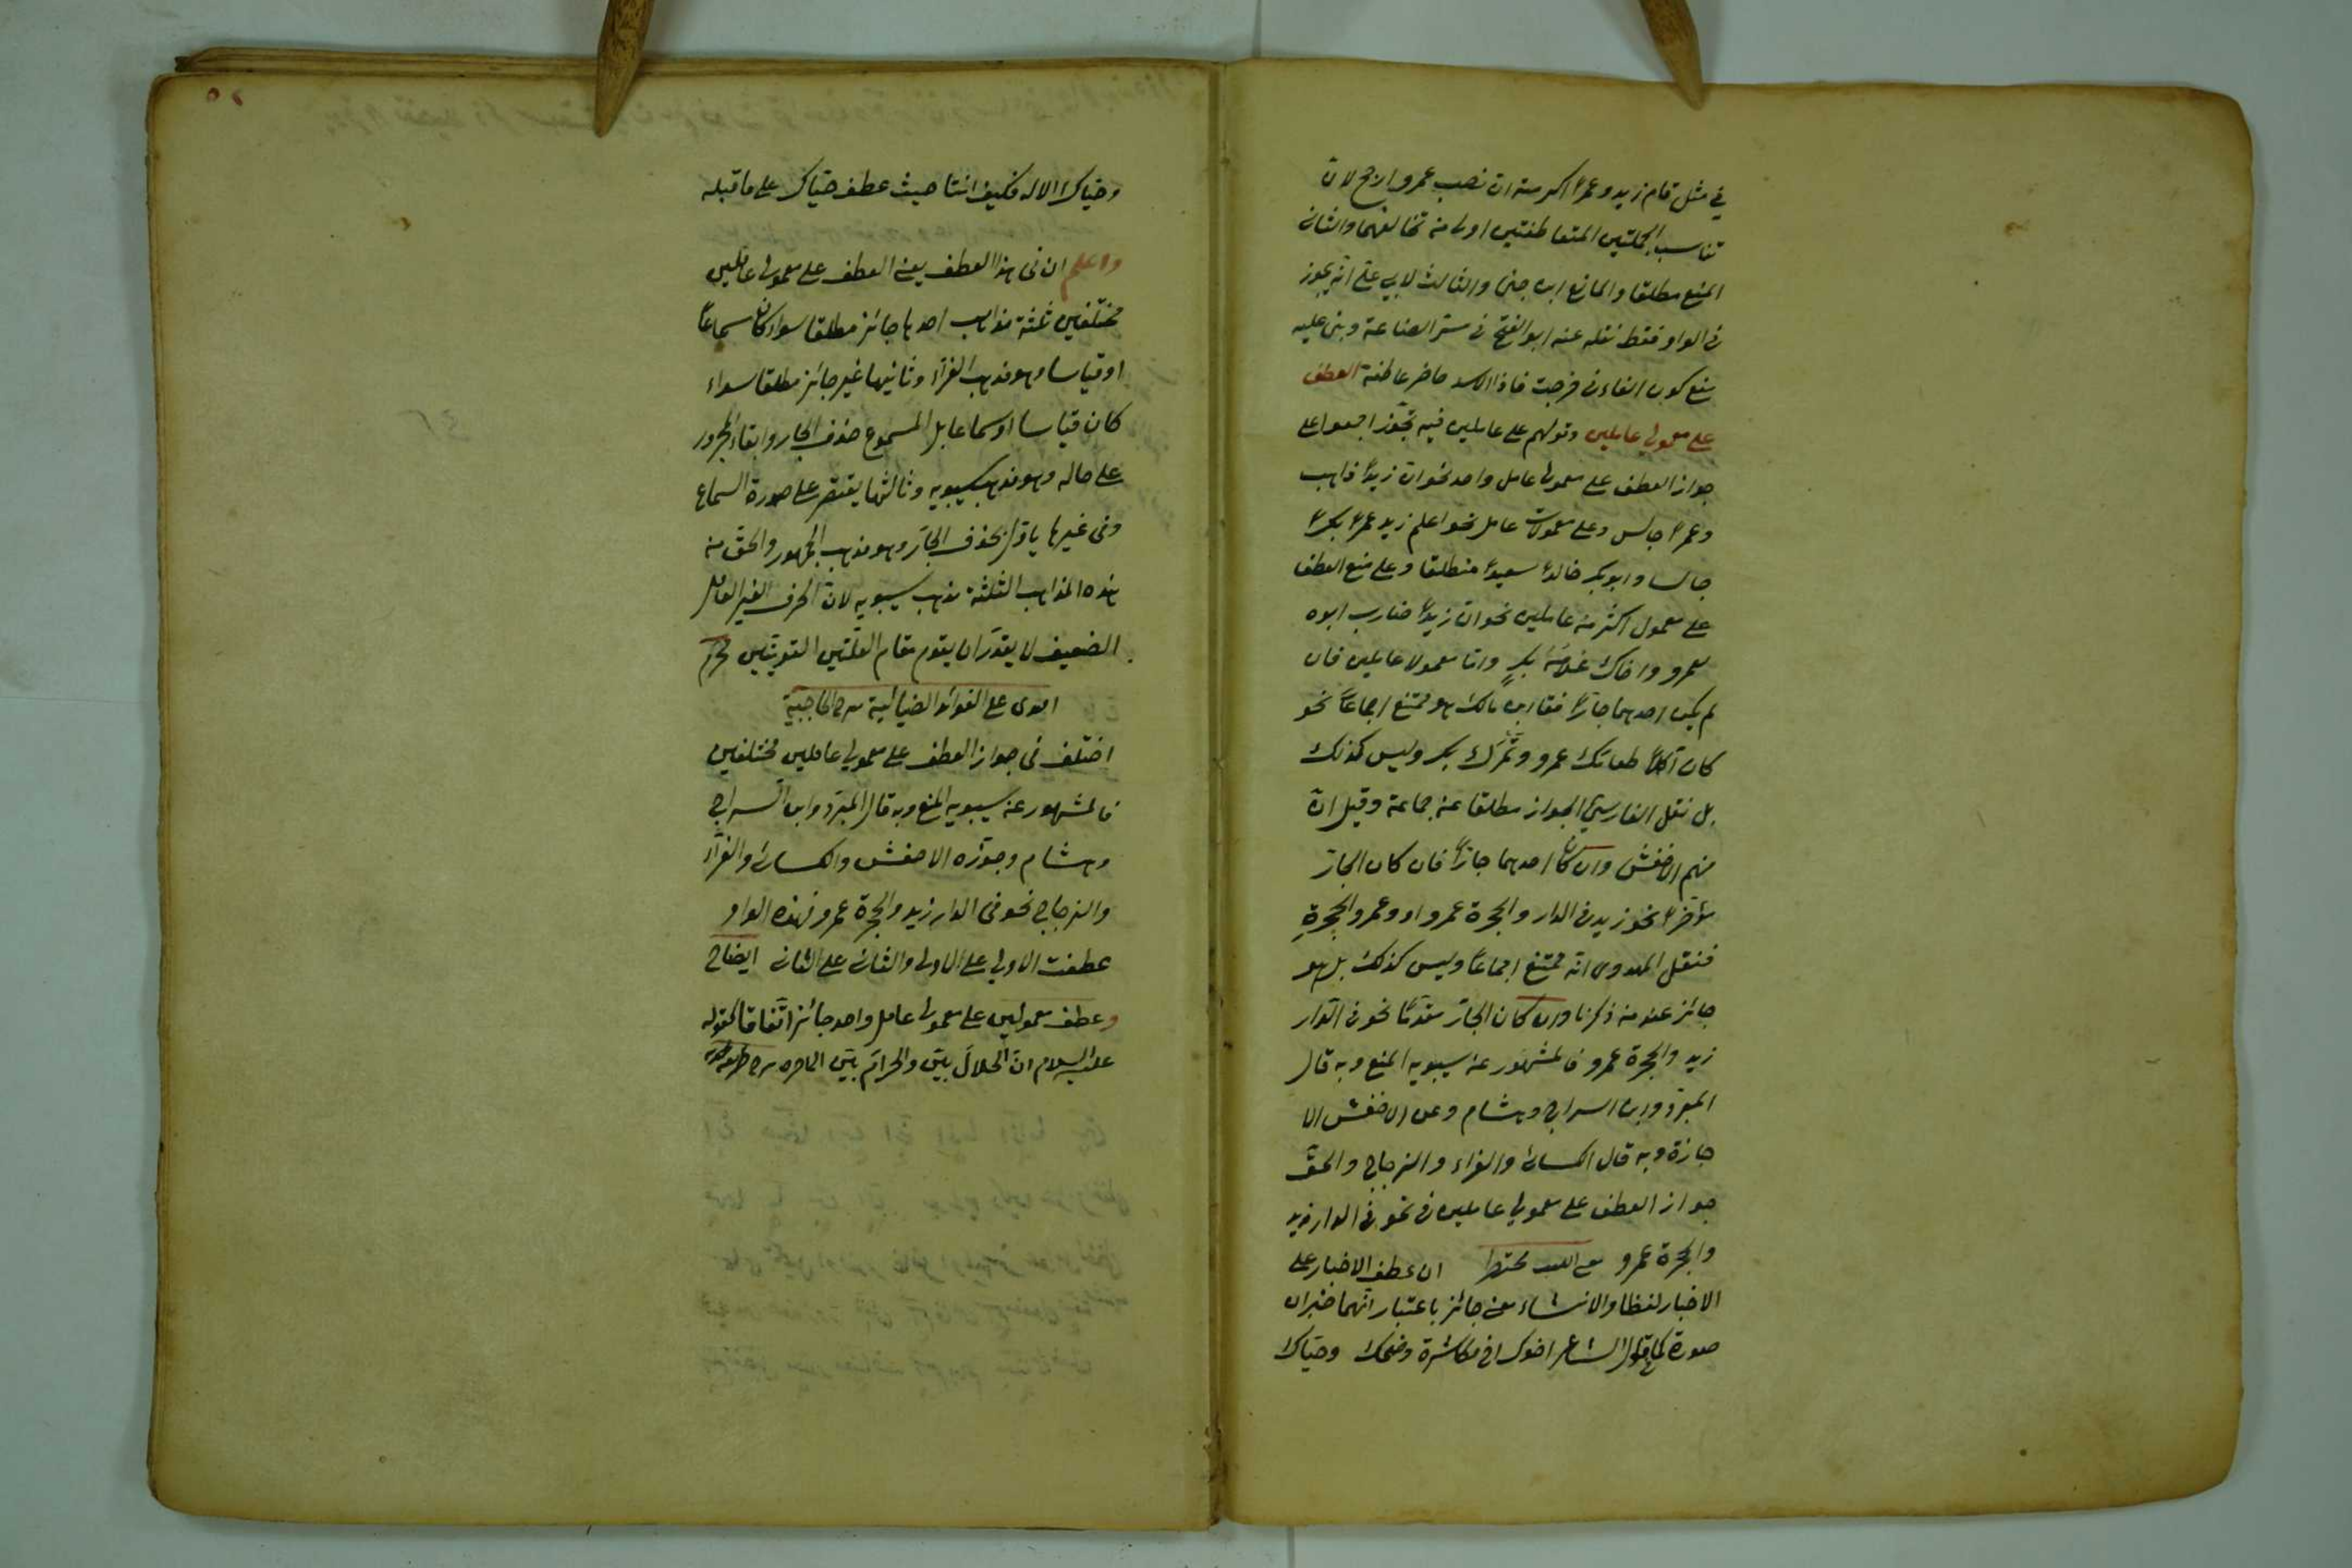 في مثل قام زيد وعمرًا اكرمته ان نصب عمرو ارجح لان
تناسب الجملتين المتعاطفتين اولى من تخالفهما والثانى
المنع مطلقا والمانع ابن جنى والثالث لابي على انه يجوز
فى الواو فقط نقله عنه ابو الفتح فى سر الصناعة وبنى عليه
منع كون الفاء فى خرجت فاذا الاسد حاضر عاطفة العطف
على معمولي عاملين وقولهم على عاملين فيه تجوّز اجمعوا على
جواز العطف على معمولى عامل واحد نحو ان زيدًا ذاهب
وعمرًا جالس وعلى معمولات عامل نحو اعلم زيد عمرًا بكرًا
جالسا وابو بكر خالدًا سعيدًا منطلقا وعلى منع العطف
على معمول اكثر من عاملين نحو ان زيدًا ضارب ابوه
لعمرو واخاك غلامَه بكرٍ واما معمولا عاملين فان
لم يكن احدهما جارًّا فقال ابن مالك هو ممتنع اجماعًا نحو
كان آكلًا طعامَك عمرو وتمرَك بكر وليس كذلك
بل نقل الفارسي الجواز مطلقا عن جماعة وقيل انّ
منهم الاخفش وان كان احدهما جارًّا فان كان الجارّ
مؤخرًا نحو زيد فى الدار والحجرة عمرو او وعمرو الحجرةِ
فنقل المهدوى انه ممتنع اجماعًا وليس كذلك بل هو
جائز عند من ذكرنا وان كان الجارّ مقدمًا نحو فى الدار
زيد والحجرة عمرو فالمشهور عن سيبويه المنع وبه قال
المبرّد وابن السراج وهشام وعن الاخفش الا
جازة وبه قال الكسائى والفراء والزجاج والحقّ
جواز العطف على معمولي عاملين فى نحو فى الدار زيد
والحجرة عمرو مختصرا ان عطف الاخبار على
الاخبار لفظا والانشاء معنى جائز باعتبار انّهما خبران
صورة كما فى قول الشاعر وضحك وحيّاك
وحيّاك الاله فكيف انتا حيث عطف حيّاك على ما قبله
واعلم ان فى هذا العطف يعنى العطف على معمولى عاملين
مختلفين ثلثة مذاهب احدها جائز مطلقا سواء كان سماعًا
او قياسا وهو مذهب الفرّاء وثانيها غير جائز مطلقا سواء
كان قياسا او سماعا بل المسموع حذف الجار وابقاء المجرور
على حاله وهو مذهب سيبويه وثالثها يقتصر على صورة السماع
وفى غيرها ياوّل بحذف الجارّ وهو مذهب الجمهور والحق من
هذه المذاهب الثلثة مذهب سيبويه لان الحرف الغير العامل
الضعيف لا يقدر ان يقوم مقام العلّتين القويّتين محرم
افندى على الفوائد الضيائية شرح الحاجبية
اختلف فى جواز العطف على معمولى عاملين مختلفين
فالمشهور عن سيبويه المنع وبه قال المبرّد وابن السراج
وهشام وجوّزه الاخفش والكسائى والفرّاء
والزجاج نحو فى الدار زيد والحجرة عمرو فهذه الواو
عطفت الاولى على الاولى والثانى على الثانى ايضاح
وعطف معمولين على معمولى عامل واحد جائز اتّفاقا كقوله
عليه السلام انّ الحلالَ بيّن والحرامَ بيّن